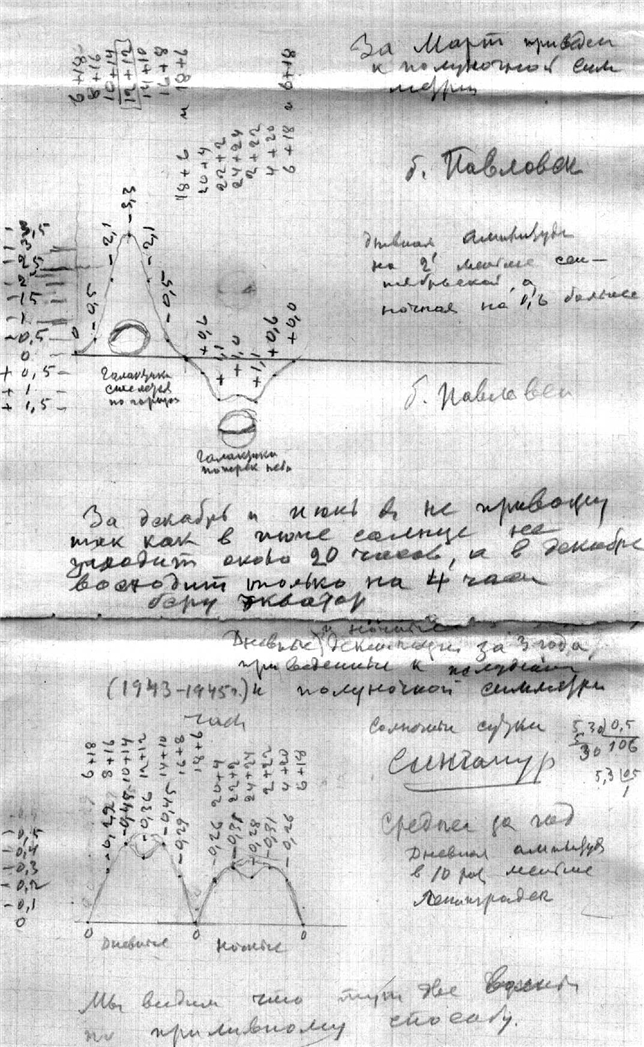 За Март приведен
к полуночной сим
метрии
6+18 8+16 10+14 12+12 14+10 16+8 18+6 и
18+6
20+4
22+2
24+24
2+22
4+20
6+18 и 6+18
б. Павловск
дневная амплитуда
на 2' менше сен-
тябрьской, а
ночная на 0,6 больше
3,5
3
2,5
2
1,5
1
-0,5
0
+ 0,5
+ 1
+ 1,5
0 -0,5 -2,1 -3,3 -2,1 -0,5
+0,7 +1 +1,1 +0,7 +0,0
Галактика
по города
Галактика
поперек неба
б. Павловск
За декабрь и июнь я не привожу
так как в июне солнце не
заходит около 20 часов, а в декабре
восходит только на 4 часа
беру экватор
и ночные
Дневные декл за 3 года
приведенные к полудню
(1943-1945г.) и полуночной симметрии
часы
6+18 8+16 10+14 12+12 14+10 16+8 18+6
20+4 22+2 24+24 2+22 4+20 6+18
-0,29 -0,45 -0,36 -0,45 -0,29
-0,26 -0,31 -0,28 -0,31 -0,26
-0,5
-0,4
-0,3
-0,2
-0,1
0
0 0 0
Дневные Ночные
Солнечные сутки
5,30 0,5
30 106
5,3 0,5
1
Сингапур
Средняя за год
Дневная амплитуда
в 10 раз менше
Ленинграда
Мы видим что тут две
по приливному способу.